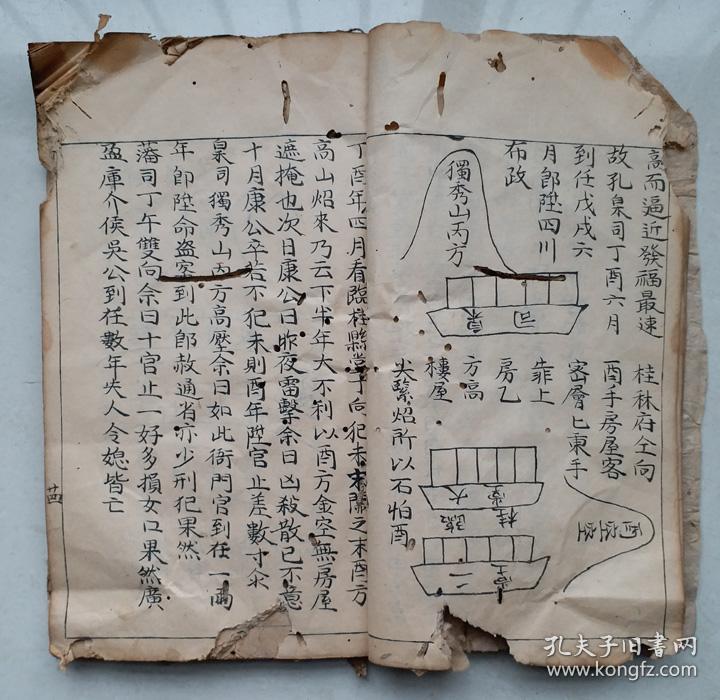 高而逼近發福最速
故孔臬司丁酉六月
到任戊戌六
月即陞四川
布政
獨秀山丙方
臬司
桂林府仝向
酉手房屋客
密層匕東手
靠上
房乙
方高
樓屋
尖繫炤所以不怕酉
大堂
桂
二堂
酉空空
丁酉年四月看臨桂縣
高山炤來乃云下半年大不利以酉方金空無房屋
遮掩也次日康公曰昨夜雷擊余曰凶殺散已不意
十月康公卒若不犯未則酉年陞官止差數寸尔
臬司獨秀山丙方高壓余曰如此衙門官到任一兩
年即陞命盗案到此即赦通省亦少刑犯果然
藩司丁午雙向余曰十官止一好多損女口果然廣
盈庫介侯吳公到任數年夫人令媳皆亡
廿四
孔夫子旧书网
www.kongfz.com